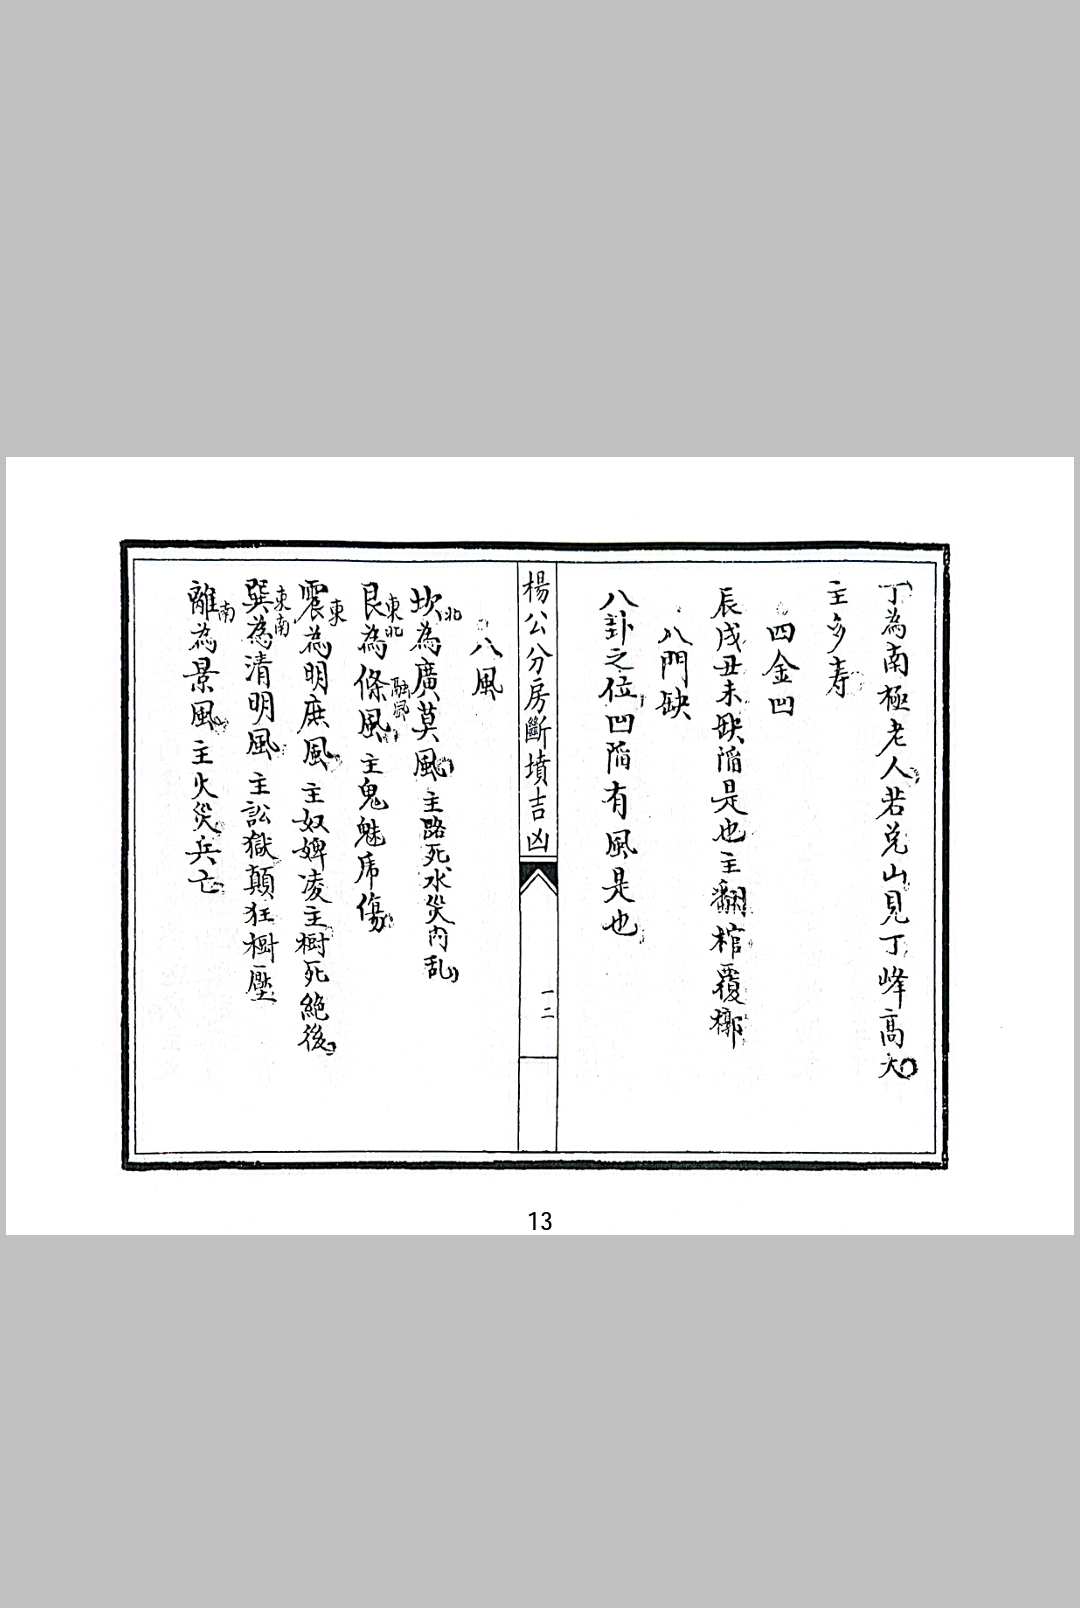 丁為南極老人若兌山見丁峰高大
主多寿
四金凹
辰戌丑未缺陷是也主翻棺覆槨
八門缺
八卦之位凹陷有風是也
楊公分房斷墳吉凶
一二
八風
坎北為廣莫風主路死水災內乱
艮東北為條風融風主鬼魅虎傷
震東為明庶風主奴婢凌主樹死絕後
巽東南為清明風主訟獄顛狂樹壓
離南為景風主火災兵亡
13